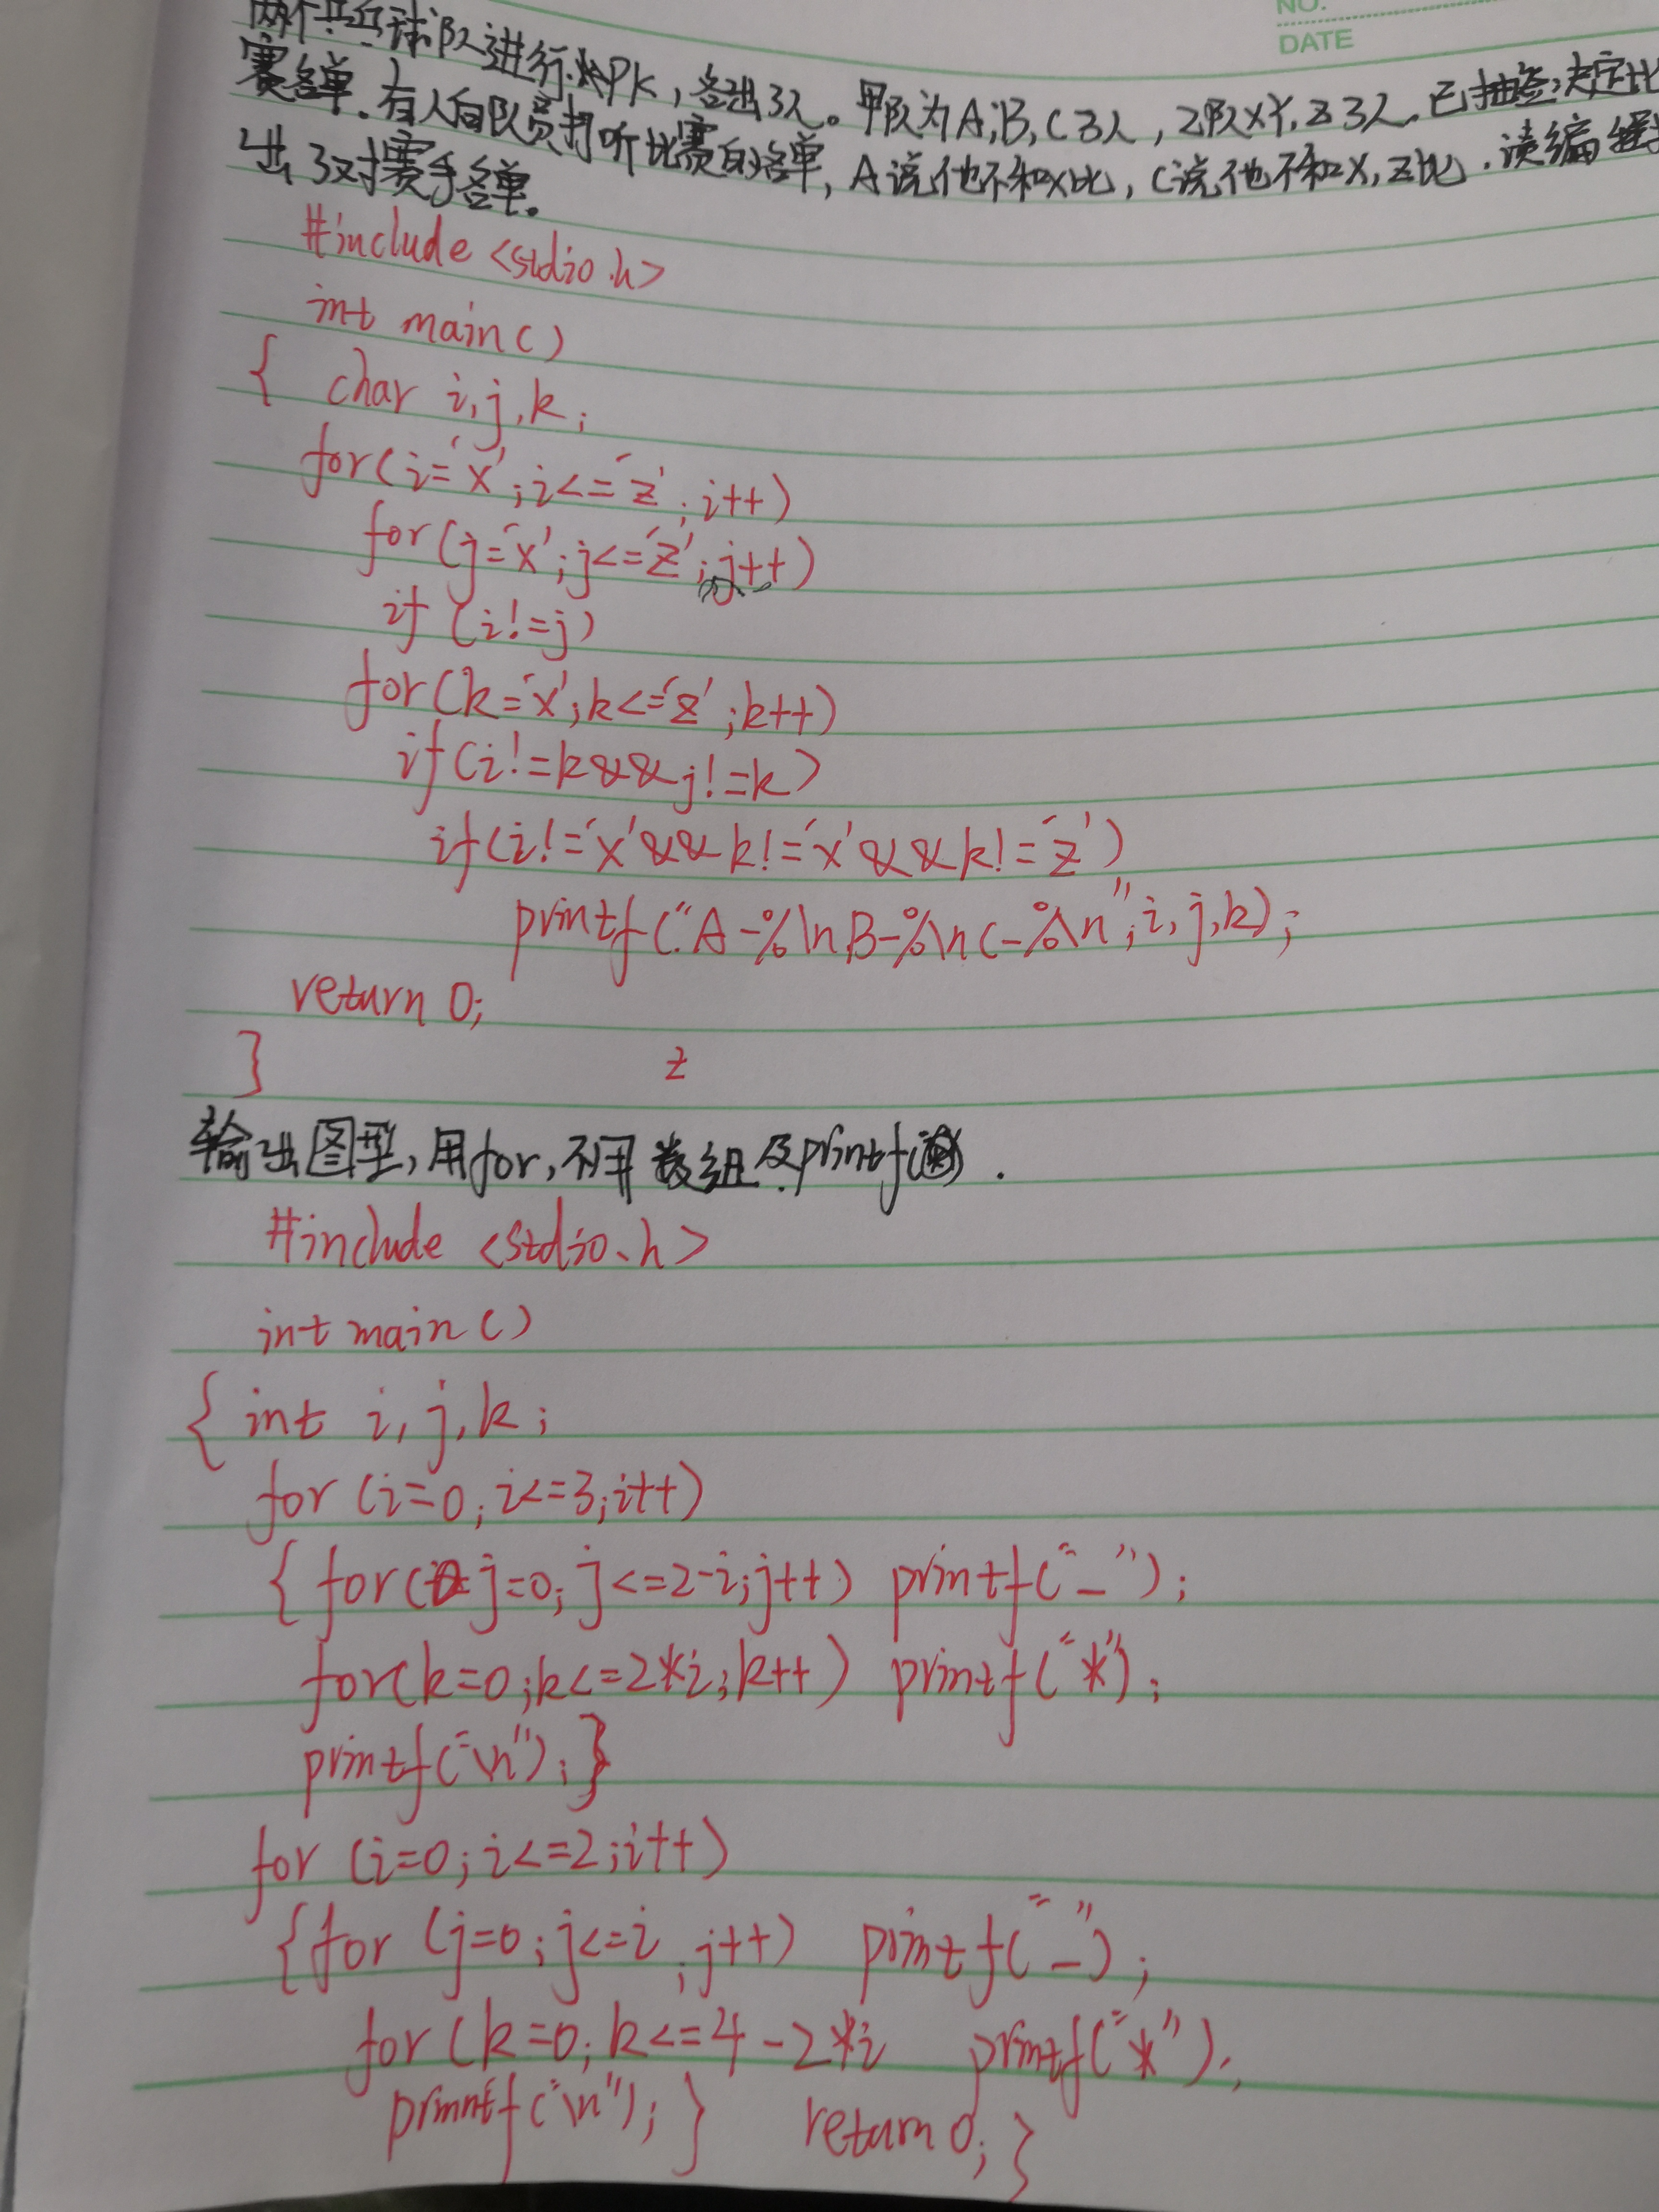 NO.
DATE
两个乒乓球队进行PK，各出3人。甲队为A,B,C3人，乙队XY,Z3人.已抽签决定比
赛名单.有人向队员打听比赛的名单,A说他不和X比,C说他不和X,Z比.请编程
出3对赛手名单.
#include <stdio.h>
int main()
{ char i,j,k;
for(i='x';i<='z';i++)
for(j='x';j<='z';j++)
if (i!=j)
for(k='x';k<='z';k++)
if(i!=k&&j!=k)
if(i!='x'&&k!='x'&&k!='z')
printf("A-%\nB-%\nC-%\n",i,j,k);
return 0;
}
z
输出图型,用for,不用数组及printf.
#include <stdio.h>
int main()
{ int i,j,k;
for (i=0;i<=3;i++)
{ for(j=0;j<=2-i;j++) printf("_");
for(k=0;k<=2*i;k++) printf("*");
printf("\n");}
for (i=0;i<=2;i++)
{for (j=0;j<=i;j++) printf("_");
for (k=0;k<=4-2*i printf("*");
printf("\n");} return 0;}